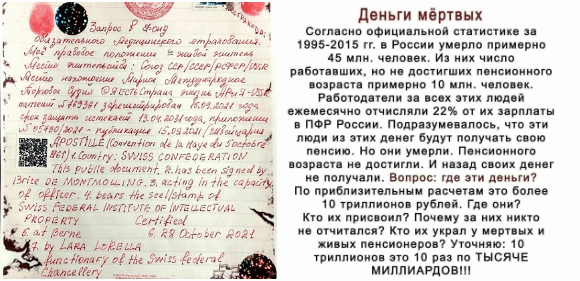 Запрос в Фонд
обязательного Медицинского страхования.
Моё правовое положение = живой житель
Место жительства: Союз ССР/СССР/РСФСР/USSR
Место нахождения Мирное Международное
Торговое Судно ЯЕСТЬ Страна
патент № 769361 зарегистрирован 16.09.2021 года
срок защиты истекает 13.04.2031 года, приложение
№ 05490/2021 - публикация 15.09.2021/Швейцария
APOSTILLE (Convention de la Haye du 5 octobre
1961) 1. Country: SWISS CONFEDERATION
This public document, 2. has been signed by
Brice DE MONTMOLLING. 3. acting in the capacity
of officer. 4. bears the seal/stamp of
SWISS FEDERAL INSTITUTE OF INTELLECTUAL
PROPERTY Certified
5. at Berne 6. 28 October 2021
7. by LARA LORELLA
functionary of the Swiss federal
Chancellery
Деньги мёртвых
Согласно официальной статистике за
1995-2015 гг. в России умерло примерно
45 млн. человек. Из них число
работавших, но не достигших пенсионного
возраста примерно 10 млн. человек.
Работодатели за всех этих людей
ежемесячно отчисляли 22% от их зарплаты
в ПФР России. Подразумевалось, что эти
люди из этих денег будут получать свою
пенсию. Но они умерли. Пенсионного
возраста не достигли. И назад своих денег
не получали. Вопрос: где эти деньги?
По приблизительным расчетам это более
10 триллионов рублей. Где они?
Кто их присвоил? Почему за них никто
не отчитался? Кто их украл у мертвых и
живых пенсионеров? Уточняю: 10
триллионов это 10 раз по ТЫСЯЧЕ
МИЛЛИАРДОВ!!!